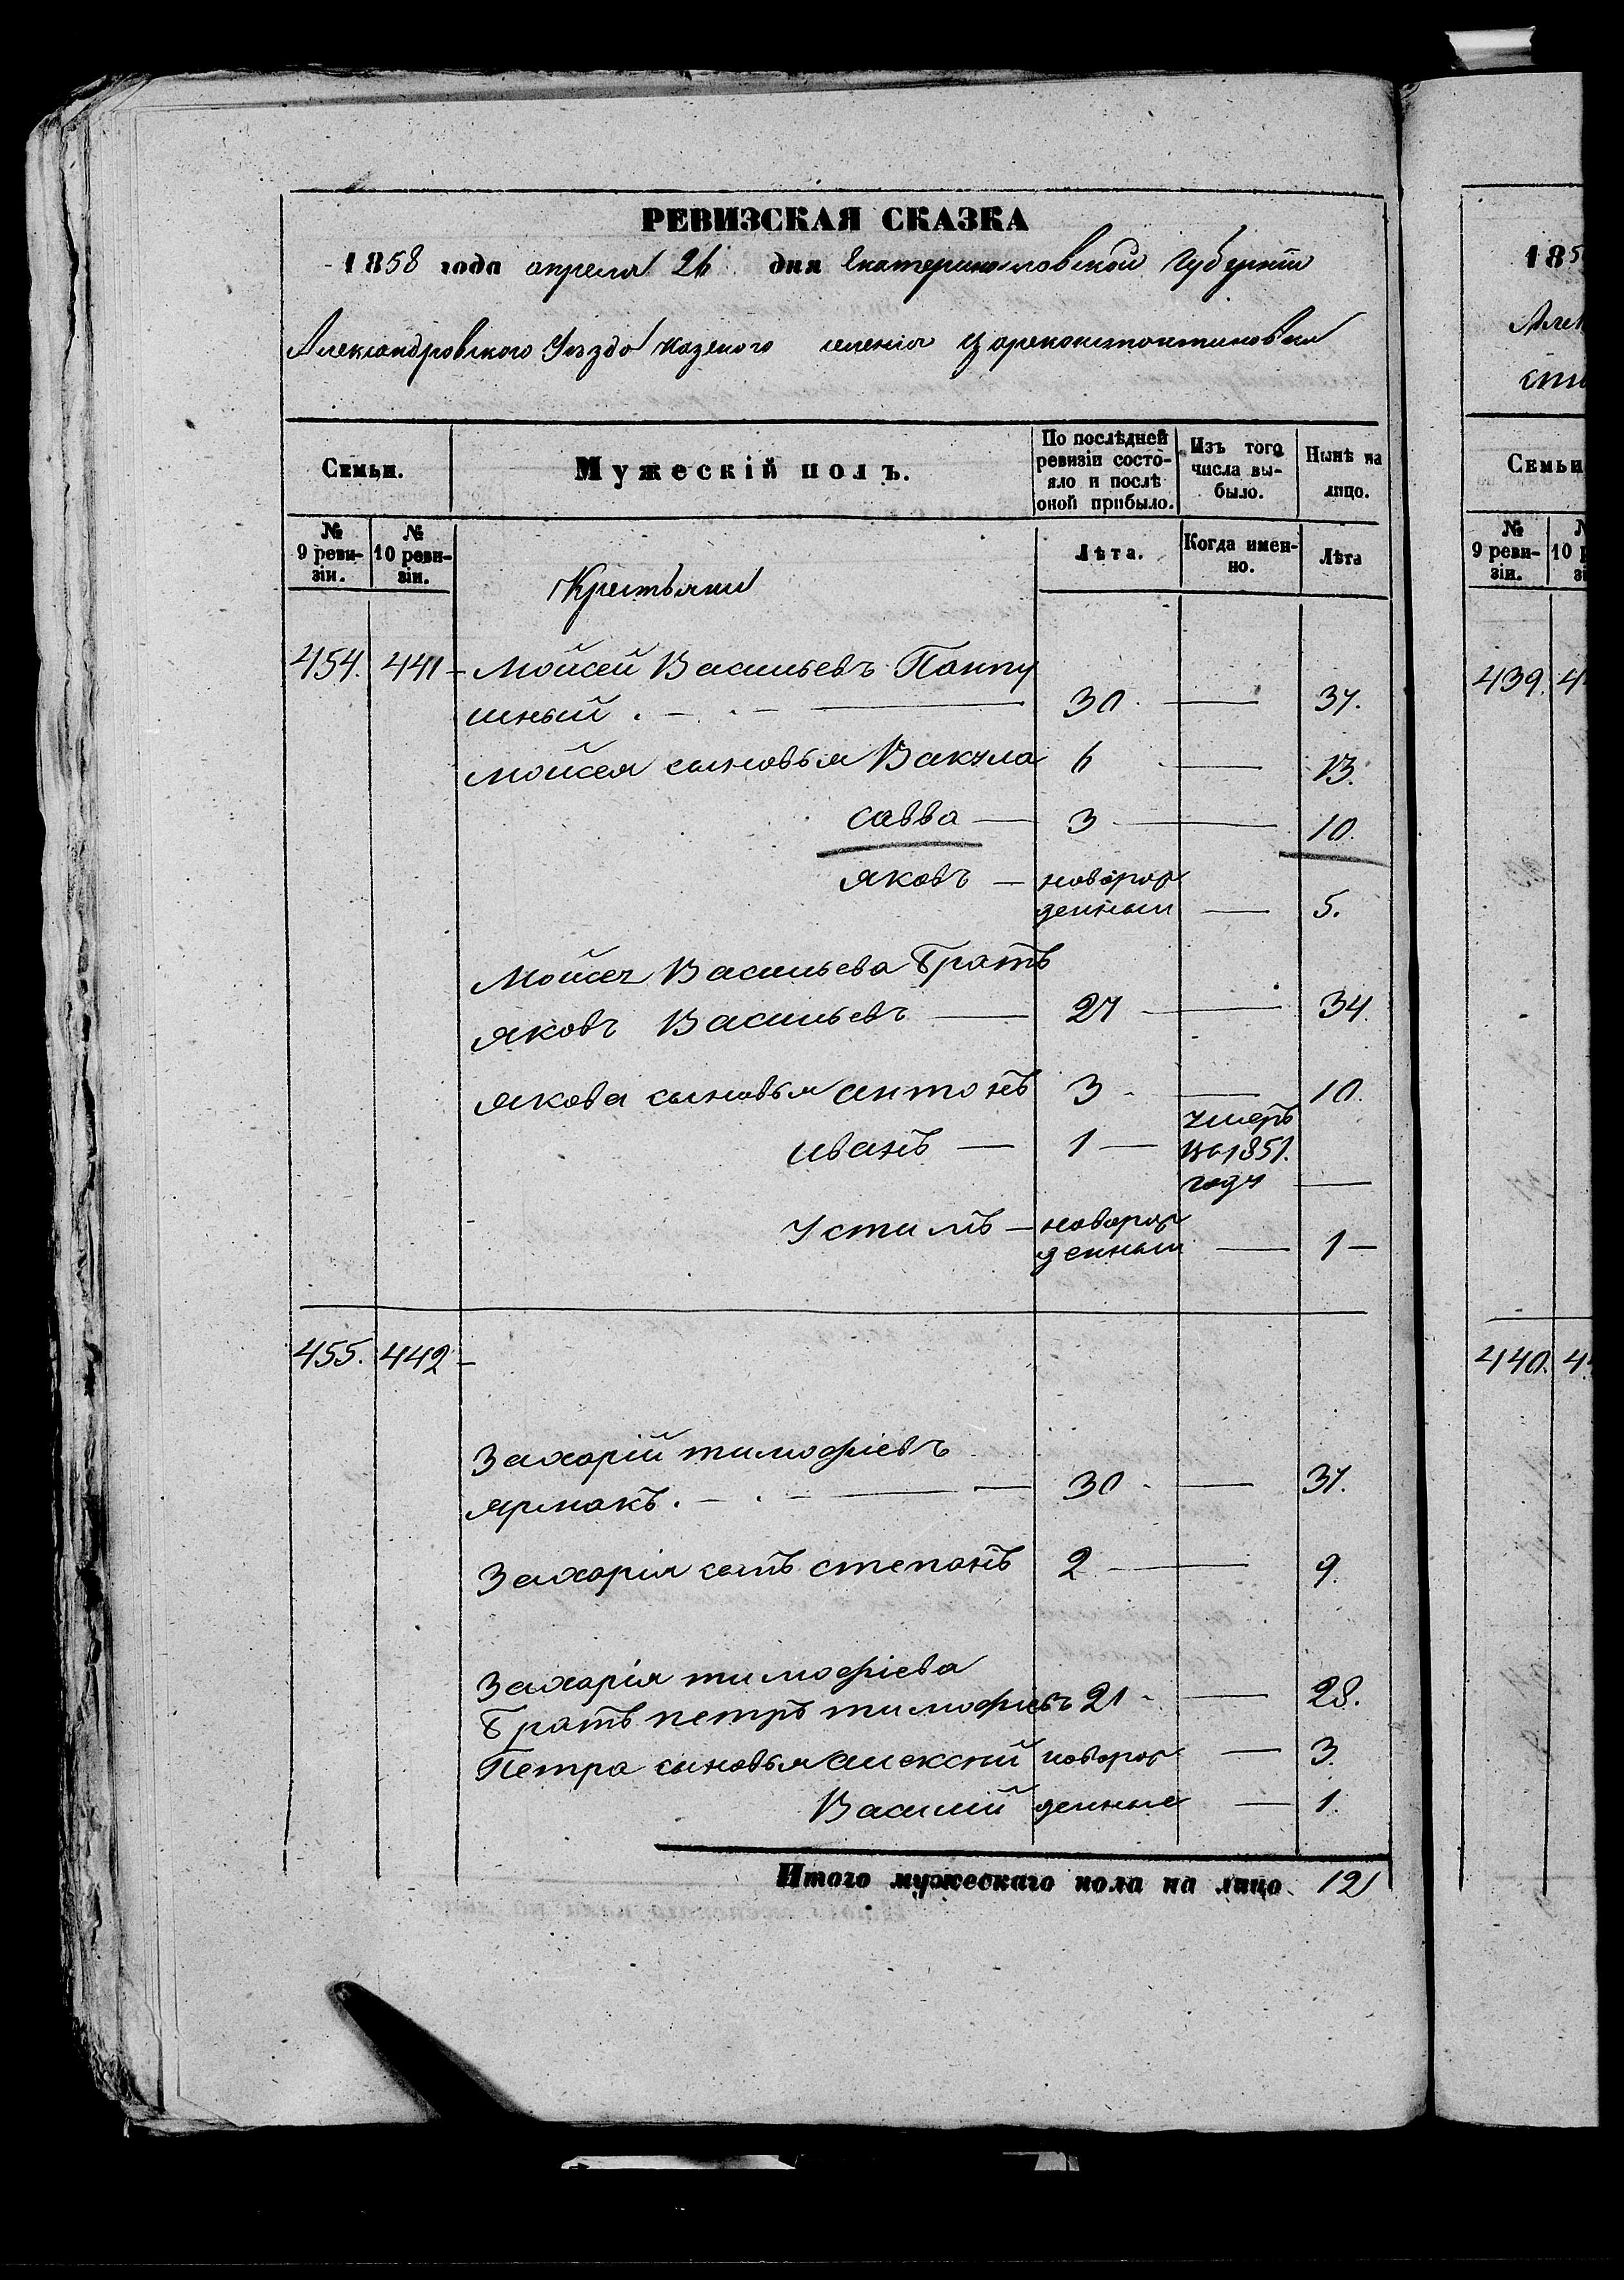 РЕВИЗСКАЯ СКАЗКА
1858 года апреля 26 дня Екатеринославской Губернии
Александровского Уезда казеного селенія Цареконстантиновки
Семьи.
Мужескій полъ.
По послѣдней ревизіи состояло и послѣ оной прибыло.
Изъ того числа выбыло.
Нынѣ на лицо.
№ 9 ревизіи.
№ 10 ревизіи.
Лѣта.
Когда именно.
Лѣта
Крестьяни
454. 441 - Мойсей Васильевъ Панпу
шный . - . - 30 - 37.
Мойсея сыновья Вакула 6 — 13.
савва — 3 — 10.
яковъ — новорож
денный — 5.
Мойсея Васильева Братъ
яковъ Васильевъ — 27 — 34
якова сыновья антонъ 3 - — 10.
иванъ — 1 — умеръ
въ 1851.
году —
Устимъ — новорож
денный — 1 —
455. 442 -
Захарій тимофіевъ
ярмакъ. - . - — 30 - — 37.
Захарія сынъ степанъ 2 — 9.
Захарія тимофіева
Братъ петръ тимофиевъ 21 - — 28.
Петра сыновья алексий новорож — 3.
Василий денные — 1.
Итого мужескаго пола на лицо 12
185
Семьи
№ 9 ревизіи.
439.
440.